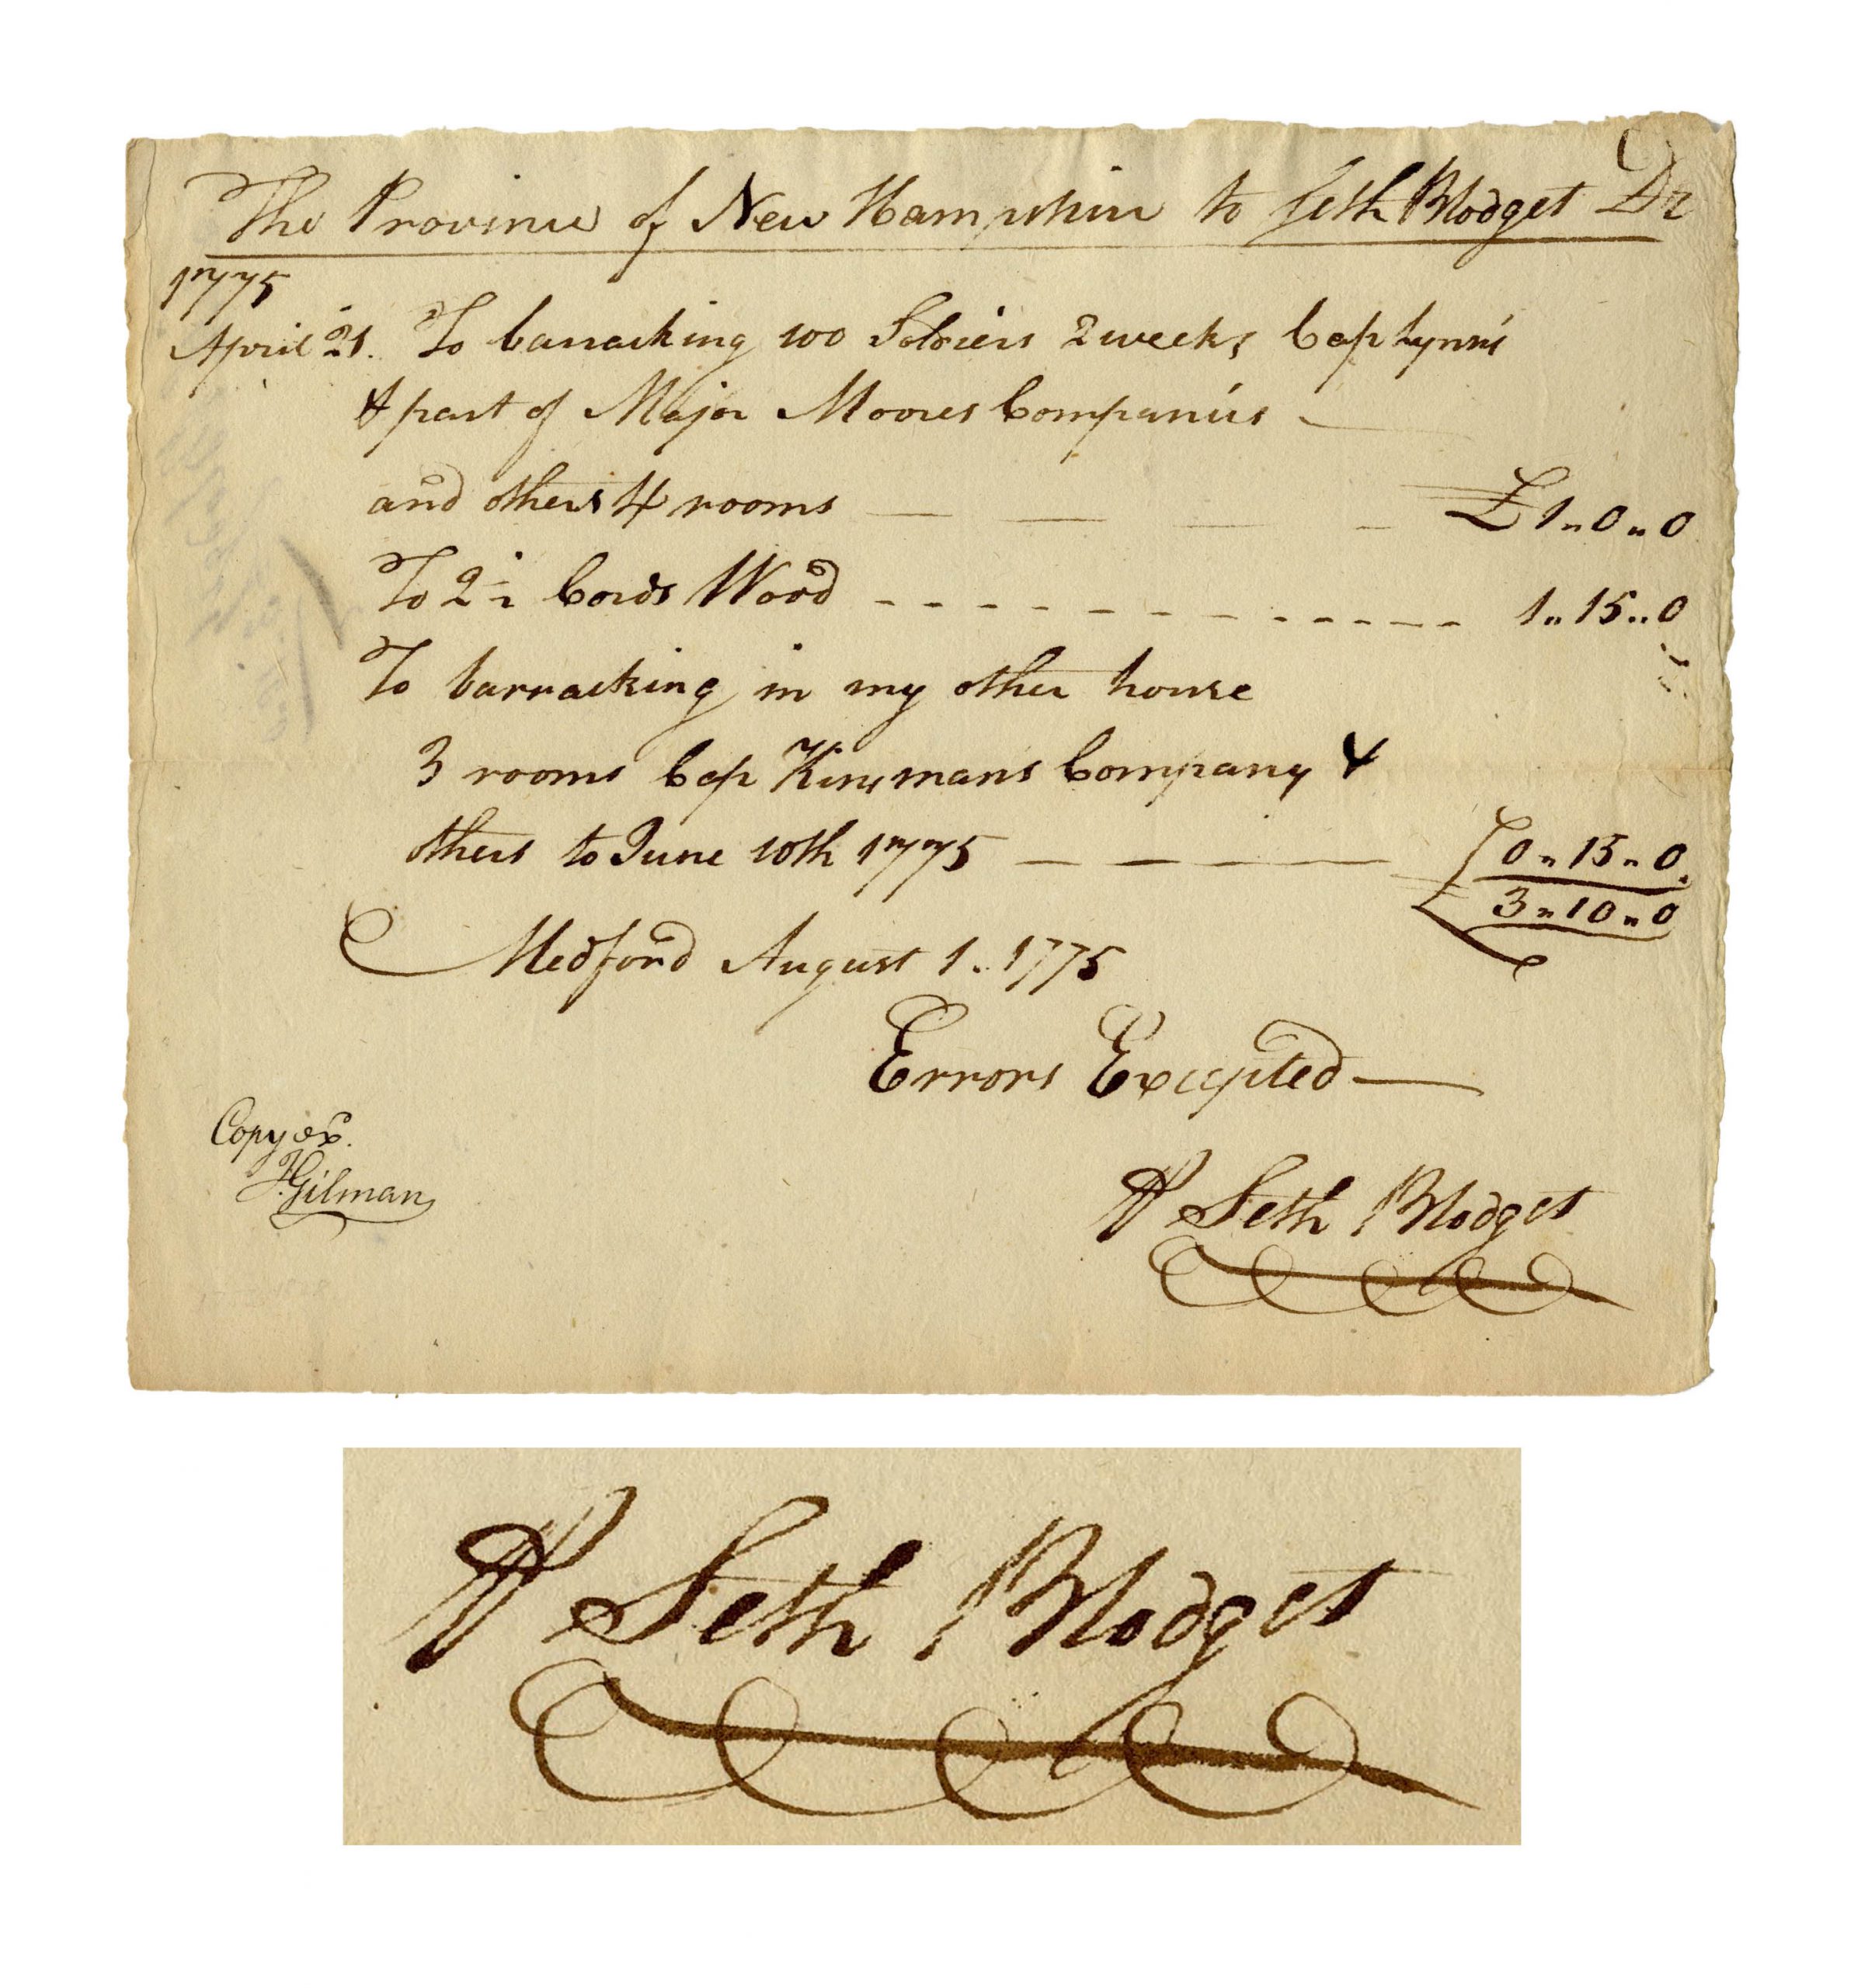 The Province of New Hampshire to Seth Blodget Dr
1775
April 21. To barracking 100 Soldiers 2 weeks Cap Lynns
& part of Major Moores Companies
and others 4 rooms £1..0..0
To 2½ Cords Wood 1..15..0
To barracking in my other house
3 rooms Cap Kinsmans Company &
others to June 10th 1775 0..15..0
£ 3..10..0
Medford August 1. 1775
Errors Excepted
Copy ex.
JGilman
⅌ Seth Blodget
⅌ Seth Blodget